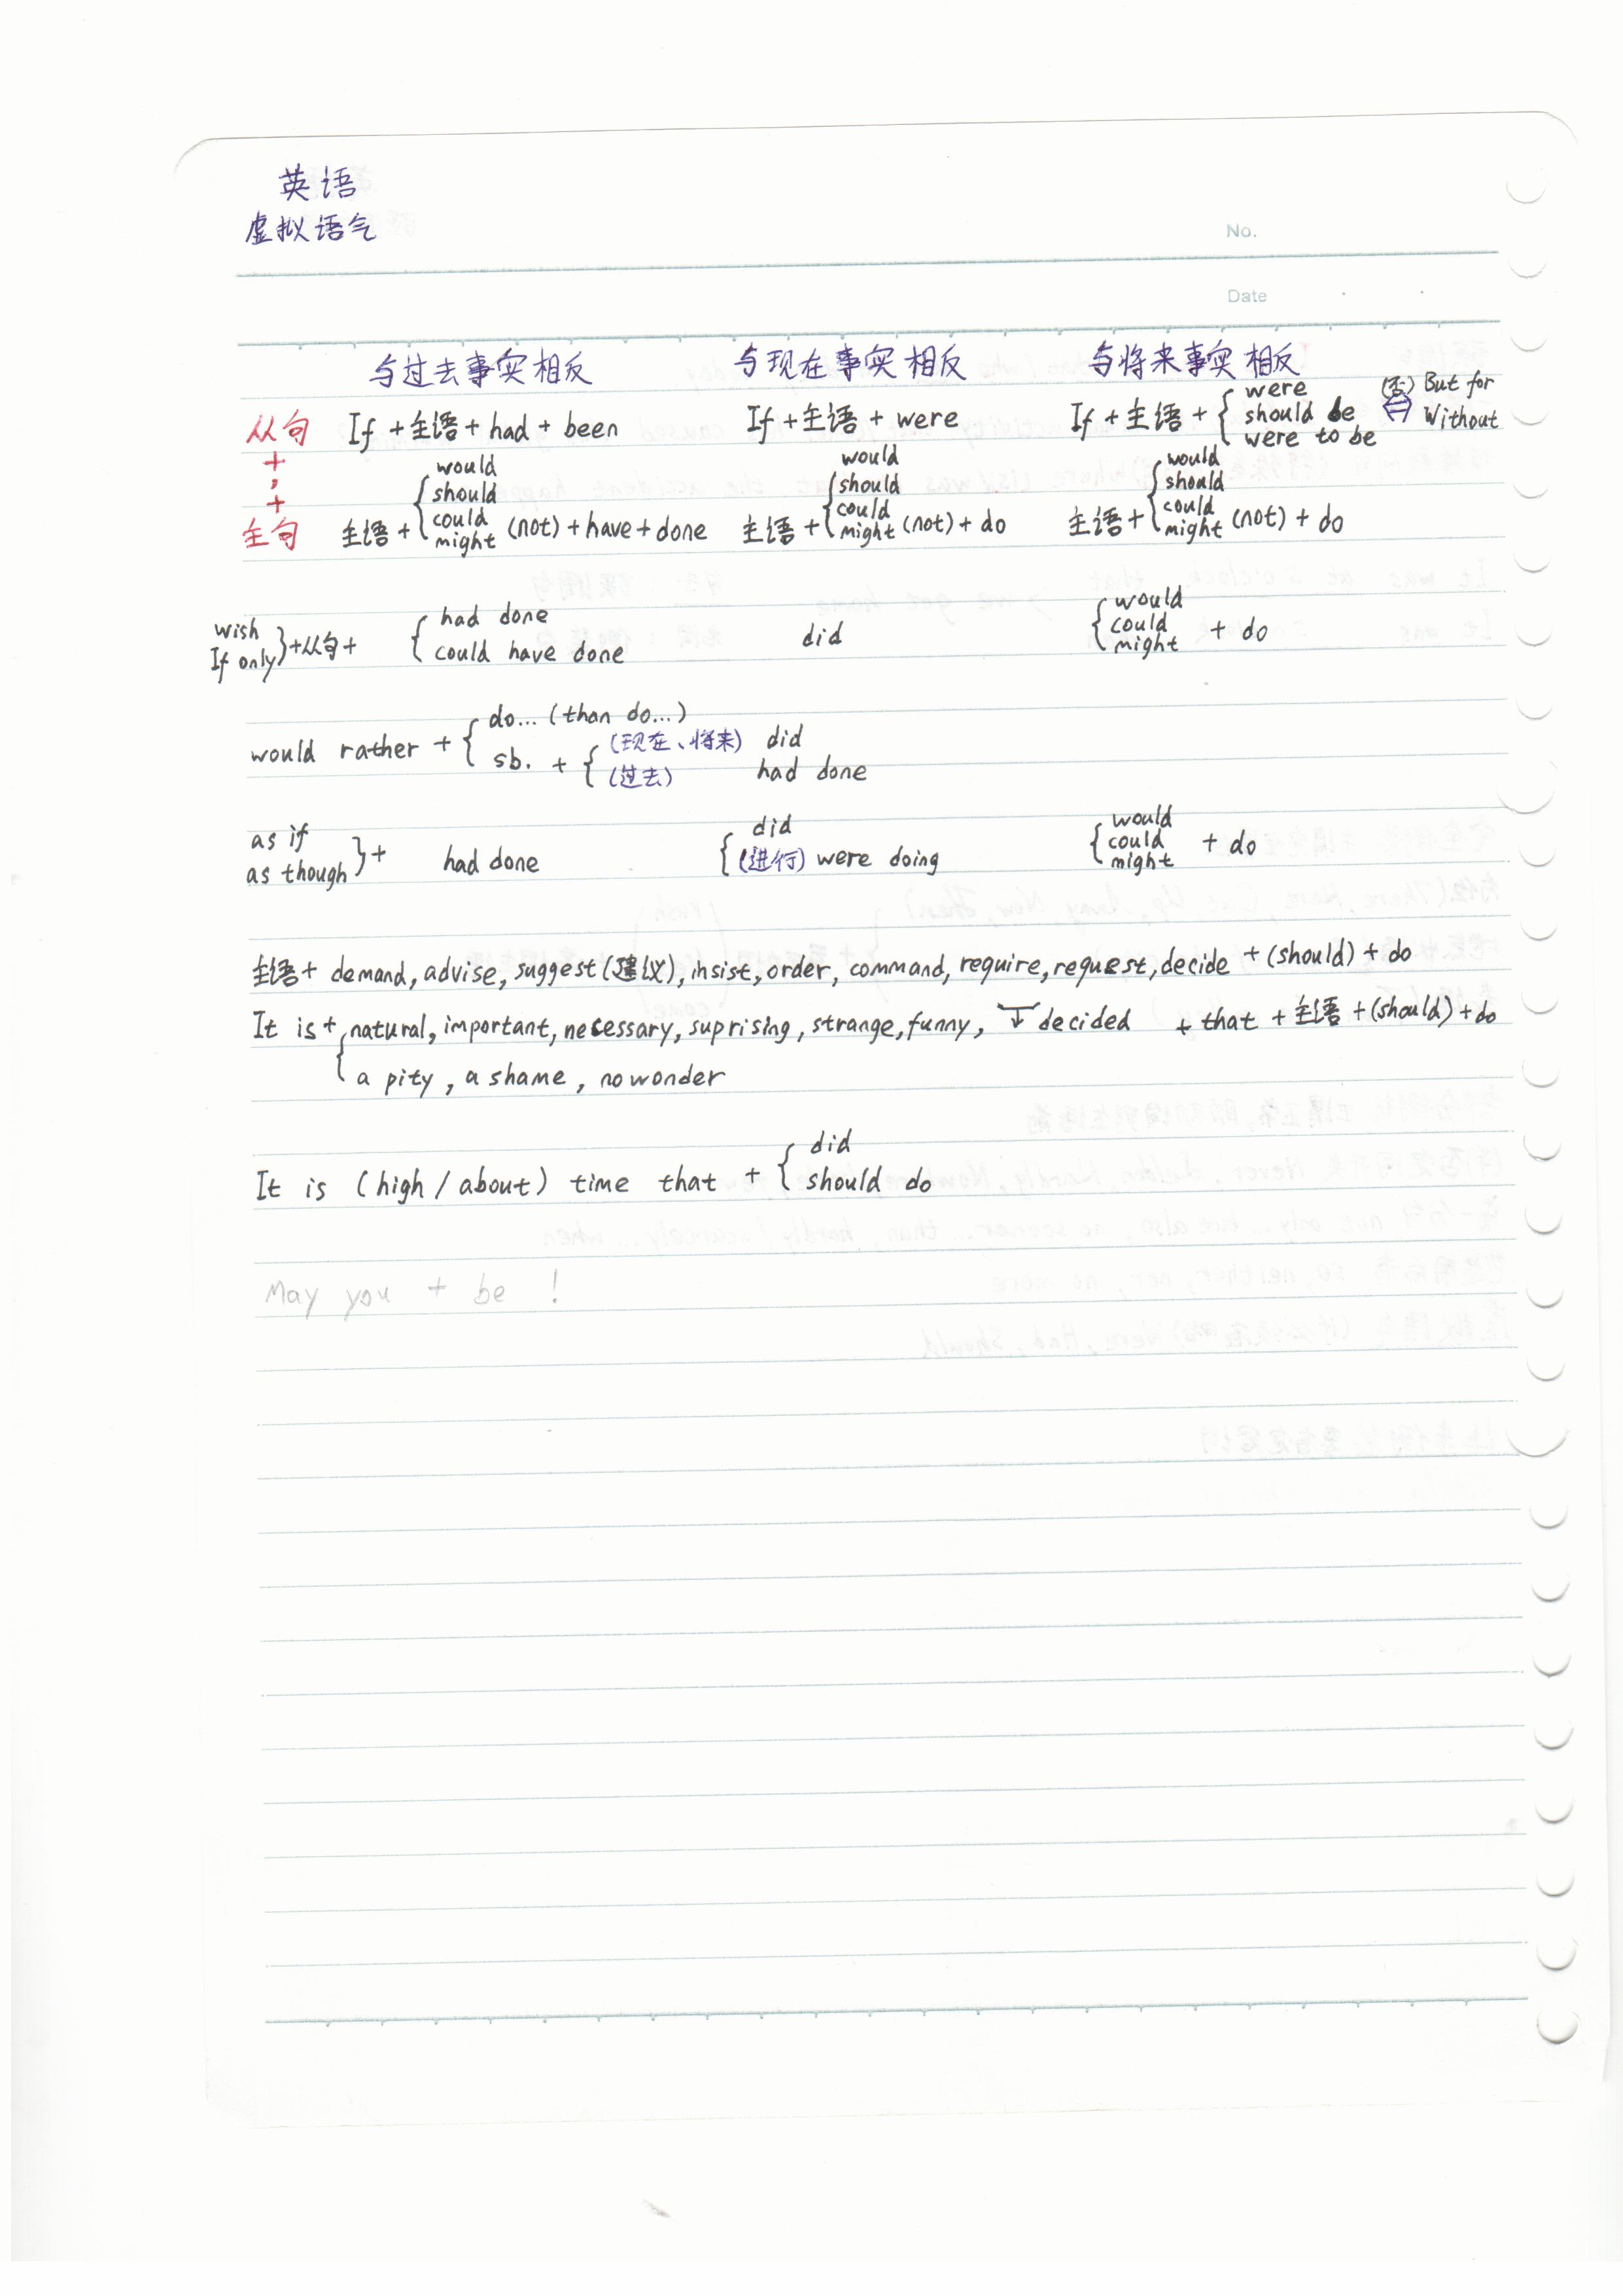 英语
虚拟语气
No.
Date
与过去事实相反 与现在事实相反 与将来事实相反
从句 If + 主语 + had + been If + 主语 + were If + 主语 + { were should be were to be (否) ⇔ But for Without
+
,
+
主句 主语 + { would should could might (not) + have + done 主语 + { would should could might (not) + do 主语 + { would should could might (not) + do
wish If only } + 从句 + { had done could have done did { would could might + do
would rather + { do... (than do...)
sb. + { (现在、将来) did
(过去) had done
as if as though } + had done { did (进行) were doing { would could might + do
主语 + demand, advise, suggest (建议), insist, order, command, require, request, decide + (should) + do
It is + { natural, important, necessary, suprising, strange, funny, ↓ decided + that + 主语 + (should) + do
a pity, a shame, no wonder
It is (high / about) time that + { did should do
May you + be !